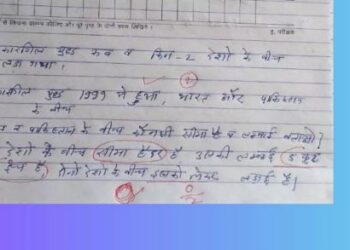 कारगिल युद्ध कब व किन-2 देशों के बीच
लड़ा गया।
युद्ध 1999 में हुआ, भारत और पाकिस्तान
के बीच
व पाकिस्तान के बीच कौनसी सीमा है व लम्बाई बताओ?
देशों के बीच सीमा है उसकी लम्बाई 5 फुट
है दोनों देशों के बीच इसको लेकर लड़ाई है।
0